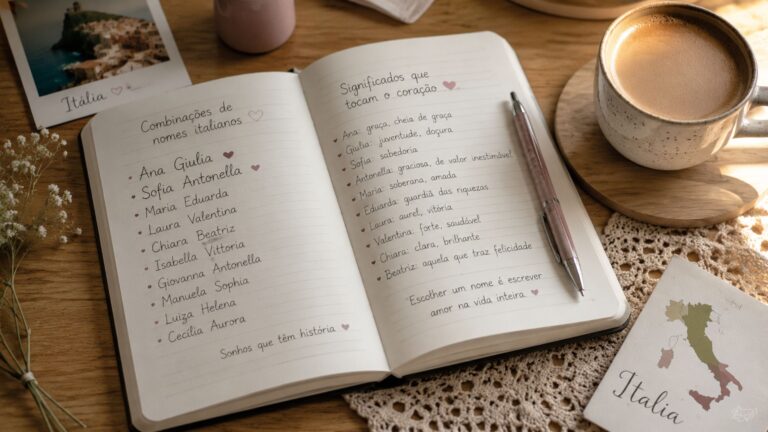 Itália ♡
Combinações de
nomes italianos ♡
• Ana Giulia ♥
• Sofia Antonella ♥
• Maria Eduarda
• Laura Valentina
• Chiara Beatriz
• Isabella Vittoria
• Giovanna Antonella
• Manuela Sophia
• Luiza Helena
• Cecília Aurora
Sonhos que têm história ♥
Significados que
tocam o coração ♥
♥ Ana: graça, cheia de graça
♥ Giulia: juventude, doçura
♥ Sofia: sabedoria
♥ Antonella: graciosa, de valor inestimável
♥ Maria: soberana, amada
♥ Eduarda: guardiã das riquezas
♥ Laura: aurel, vitória
♥ Valentina: forte, saudável
♥ Chiara: clara, brilhante
♥ Beatriz: aquela que traz felicidade
"Escolher um nome é escrever
amor na vida inteira ♥
Italia